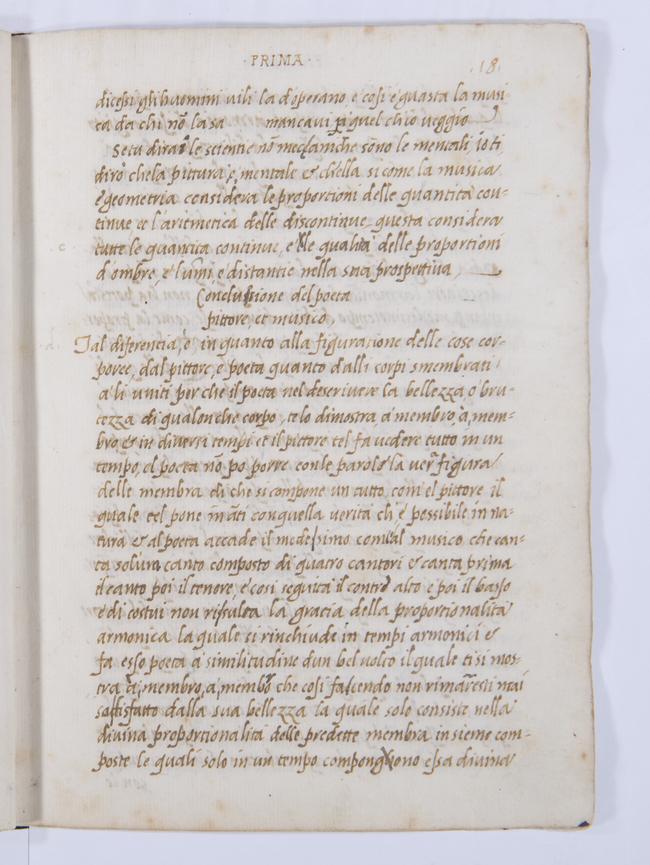 · PRIMA ·
18
dicessi gli huomini vili la d'operano, e cosi e guasta la musi
ca da chi nō la sa mancavi ꝑ quel ch'io veggio
Se tu dirai le scientie nō mechaniche sono le mentali, io ti
dirò che la pittura è, mentale & ch'ella si come la musica
e geometria considera le proportioni delle quantita con-
tinue et l'aritmetica delle discontinue, questa considera
tutte le quantita continue, e le qualita delle proportioni
d'ombre, e lumi e distantie nella sua prospettiva
Conclusione del poeta
pittore, et musico,
Tal diferentia, è in quanto alla figuratione delle cose cor-
poree, dal pittore, e poeta quanto dalli corpi smembrati
a li uniti perche il poeta nel descrivere la bellezza, o bru-
tezza di qualonche corpo, te lo dimostra, a membro, a, mem-
bro, & in diversi tempi et il pittore tel fa vedere tutto in un
tempo, el poeta nō po porre con le parole la vera figura
delle membra di che si compone un tutto com' el pittore il
quale tel pone in̄ati con quella verità ch' è possibile in na-
tura & al poeta accade il medesimo com' al musico che can-
ta solum canto composto di quatro cantori & canta prima
il canto poi il tenore, e cosi seguita il contro alto e poi il basso
e di costui non risulta la gratia della proportionalita
armonica la quale si rinchiude in tempi armonici &
fa esso poeta a similitudine d'un bel volto il quale ti si mos-
tra a, membro, a, membro che cosi facendo non rimaresti mai
sattisfatto dalla sua bellezza la quale solo consiste nella
divina proportionalità delle predette membra insieme com-
poste le quali solo in un tempo compongono essa divina